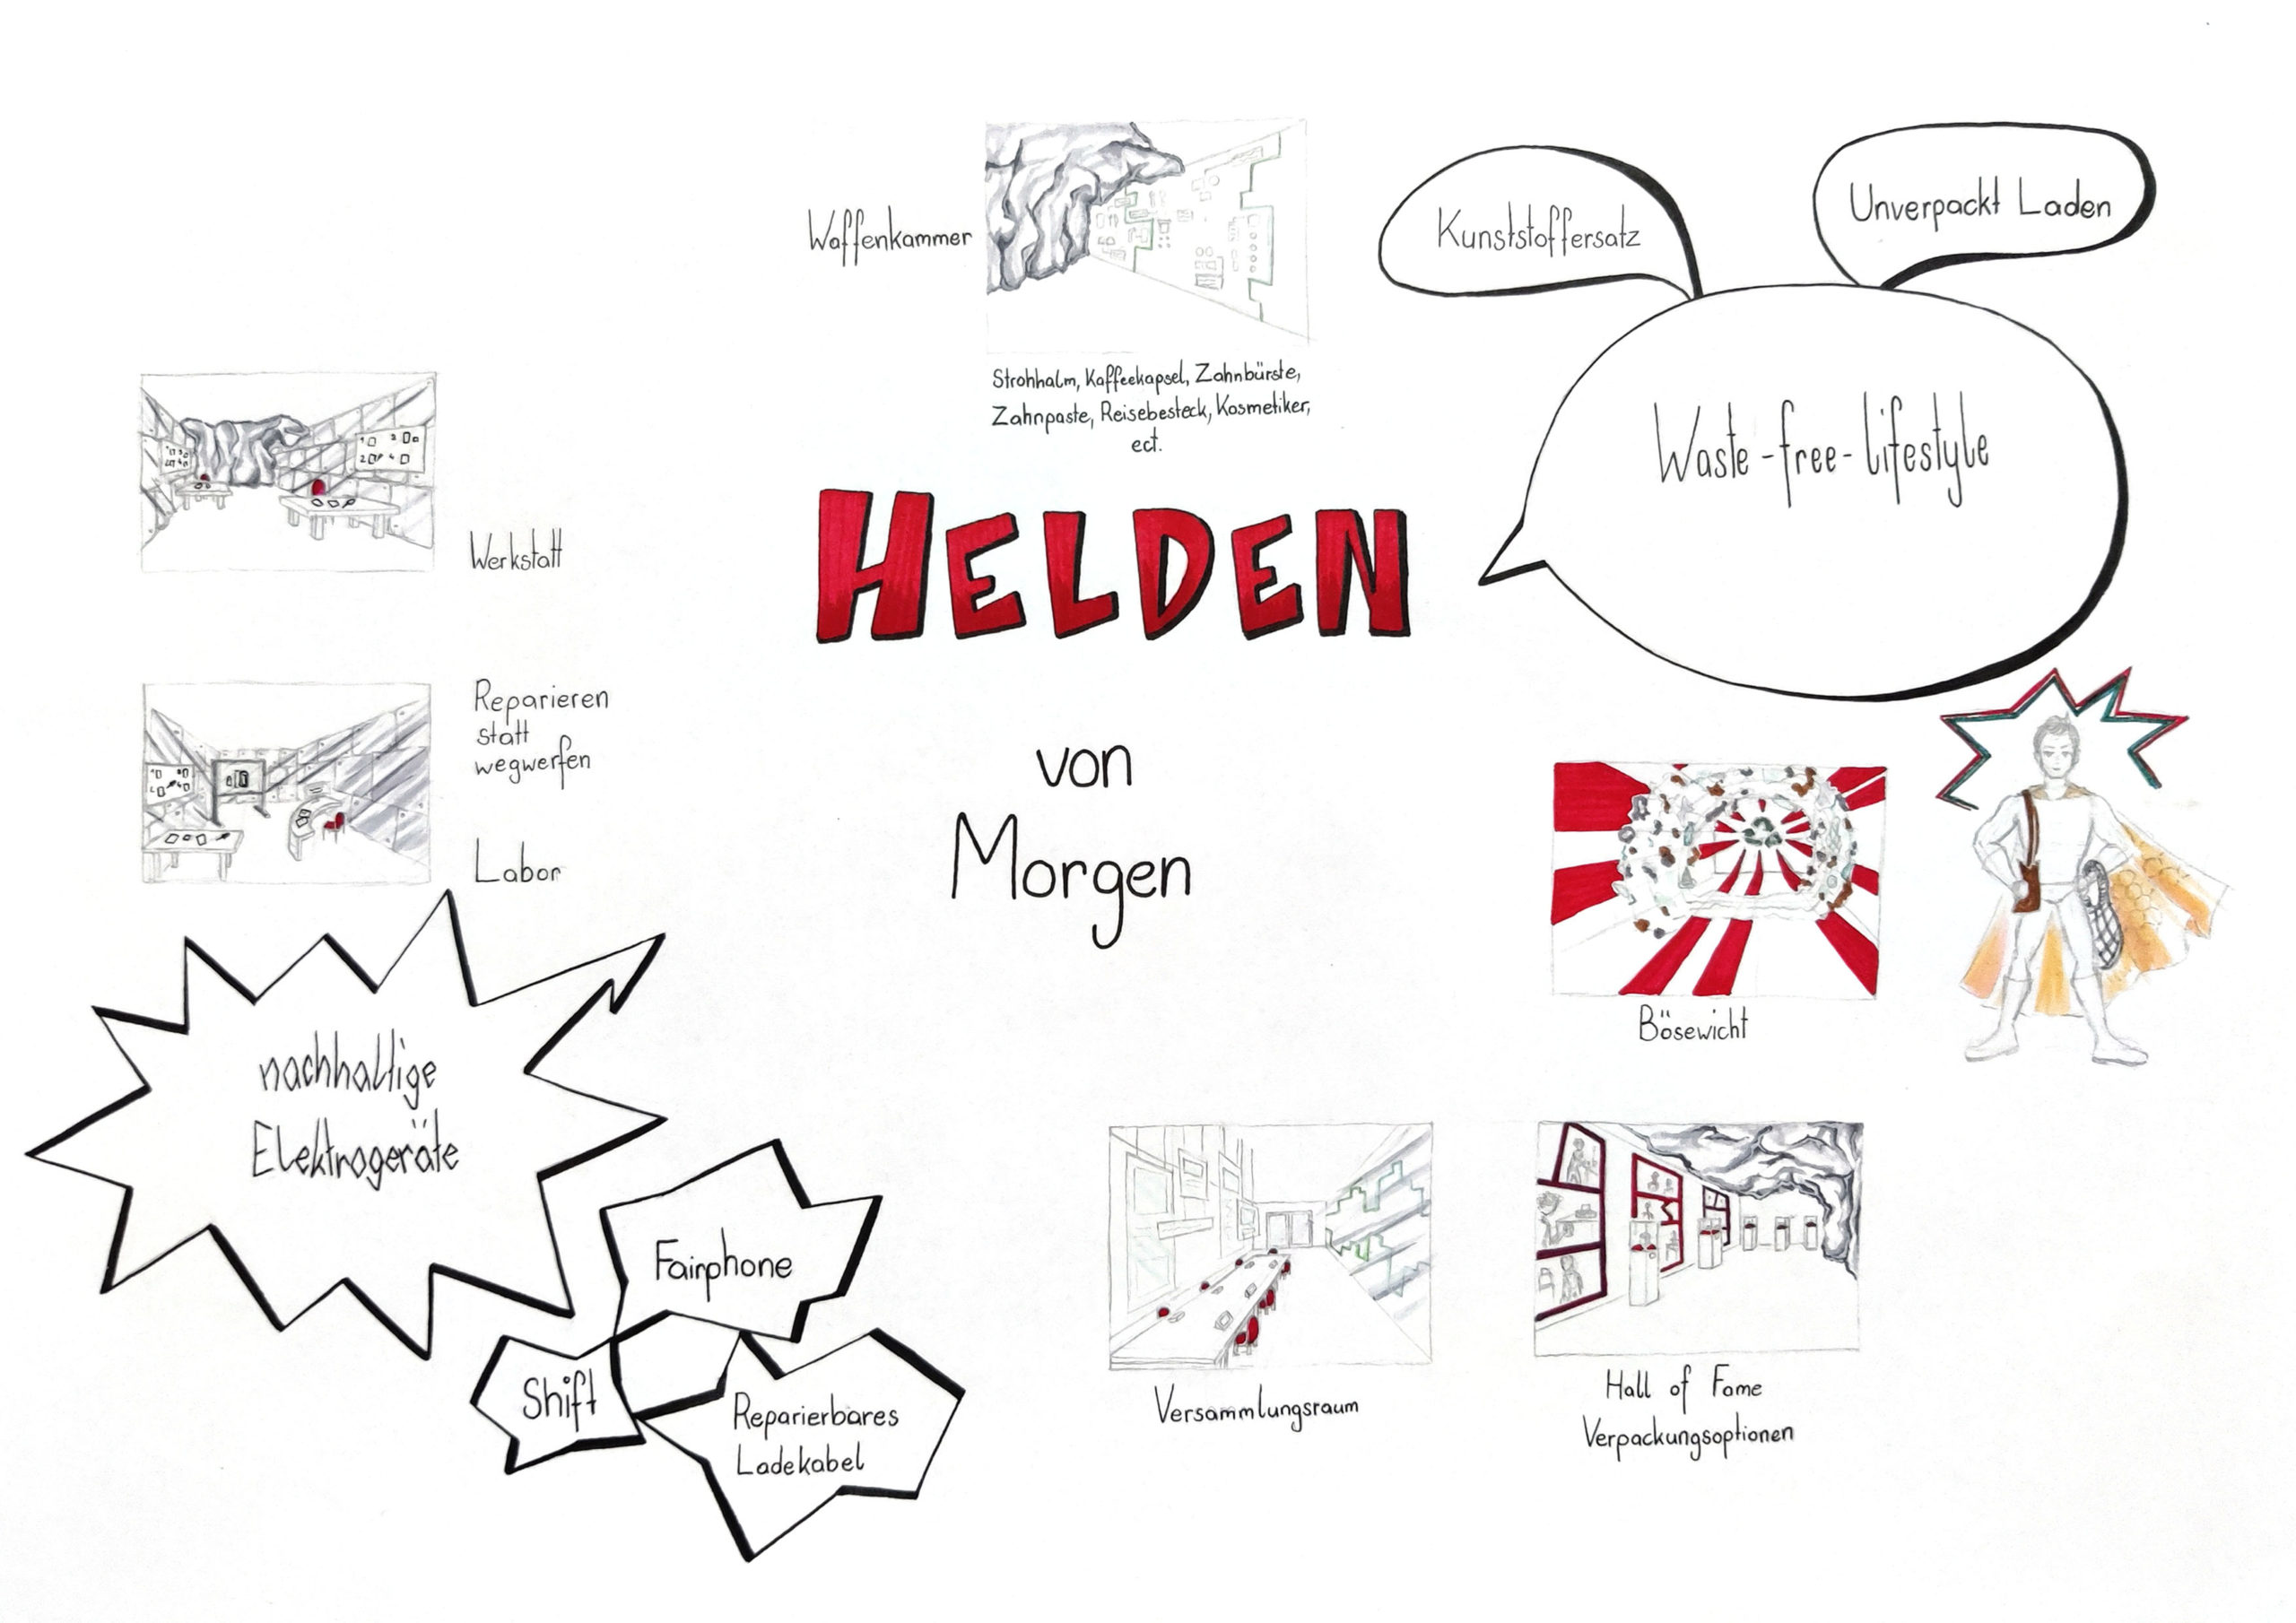 Waffenkammer
Strohhalm, Kaffeekapsel, Zahnbürste,
Zahnpaste, Reisebesteck, Kosmetiker,
ect.
Kunststoffersatz
Unverpackt Laden
Waste-free-lifestyle
Werkstatt
HELDEN
von
Morgen
Reparieren
statt
wegwerfen
Labor
Bösewicht
nachhaltige
Elektrogeräte
Fairphone
Shift
Reparierbares
Ladekabel
Versammlungsraum
Hall of Fame
Verpackungsoptionen